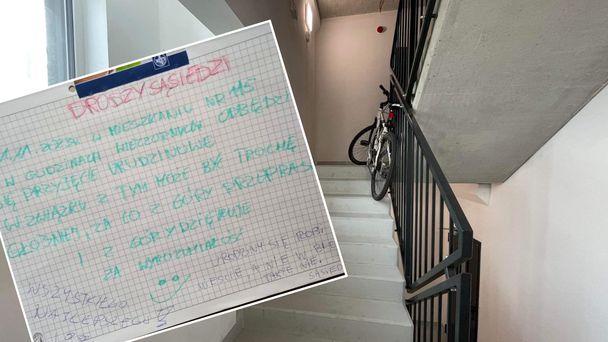 DRODZY SĄSIEDZI
W MIESZKANIU NR 115
W GODZINACH WIECZORNYCH ODBĘDZIE
SIĘ PRZYJĘCIE URODZINOWE
W ZWIĄZKU Z TYM MOŻE BYĆ TROCHĘ
GŁOŚNIEJ, ZA CO Z GÓRY PRZEPRAS
I Z GÓRY DZIĘKUJĘ
ZA WYROZUMIAŁOŚĆ
URODZINY SIĘ ROBI
A NIE W BLO
TAKŻE NIE.
SĄSIED
WSZYSTKIEGO
NAJLEPSZEGO